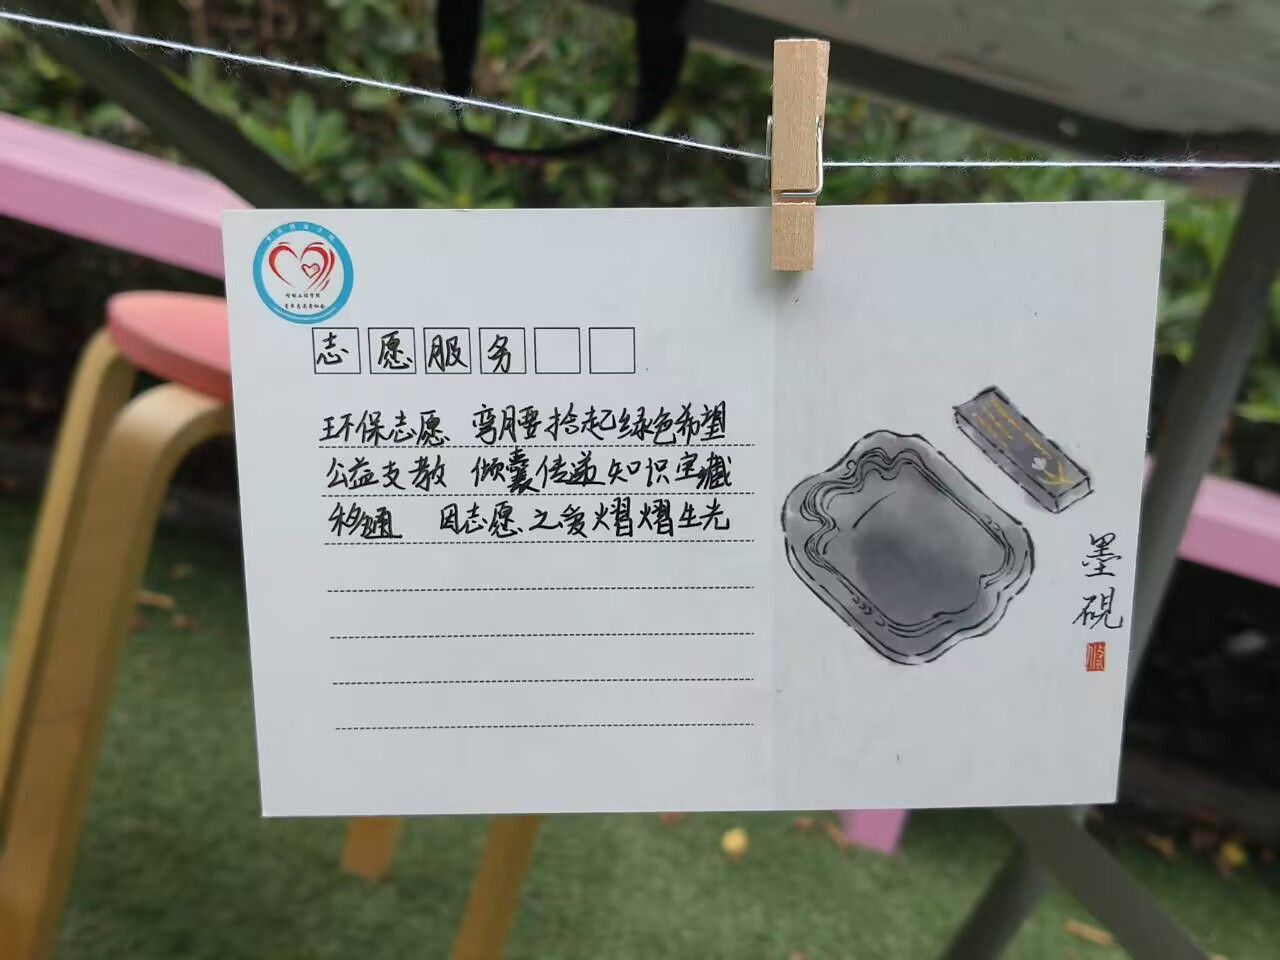 志愿服务
环保志愿 弯腰拾起绿色希望
公益支教 倾囊传递知识宝藏
移通 因志愿之爱熠熠生光
墨砚